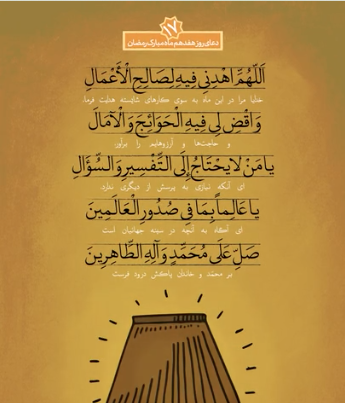 ۱۷
دعای روز هفدهم ماه مبارک رمضان
اَللّهُمَّ اهْدِنِي فِيهِ لِصَالِحِ الْأَعْمَالِ
خدایا مرا در این ماه به سوی کارهای شایسته هدایت فرما.
وَاقْضِ لِي فِيهِ الْحَوَائِجَ وَالْآمَالَ
و حاجت‌ها و آرزوهایم را برآور.
يَا مَنْ لَا يَحْتَاجُ إِلَى التَّفْسِيرِ وَالسُّؤَالِ
ای آنکه نیازی به پرسش از دیگری ندارد.
يَا عَالِماً بِمَا فِي صُدُورِ الْعَالَمِينَ
ای آگاه به آنچه در سینه جهانیان است
صَلِّ عَلَى مُحَمَّدٍ وَآلِهِ الطَّاهِرِينَ
بر محمد و خاندان پاکش درود فرست